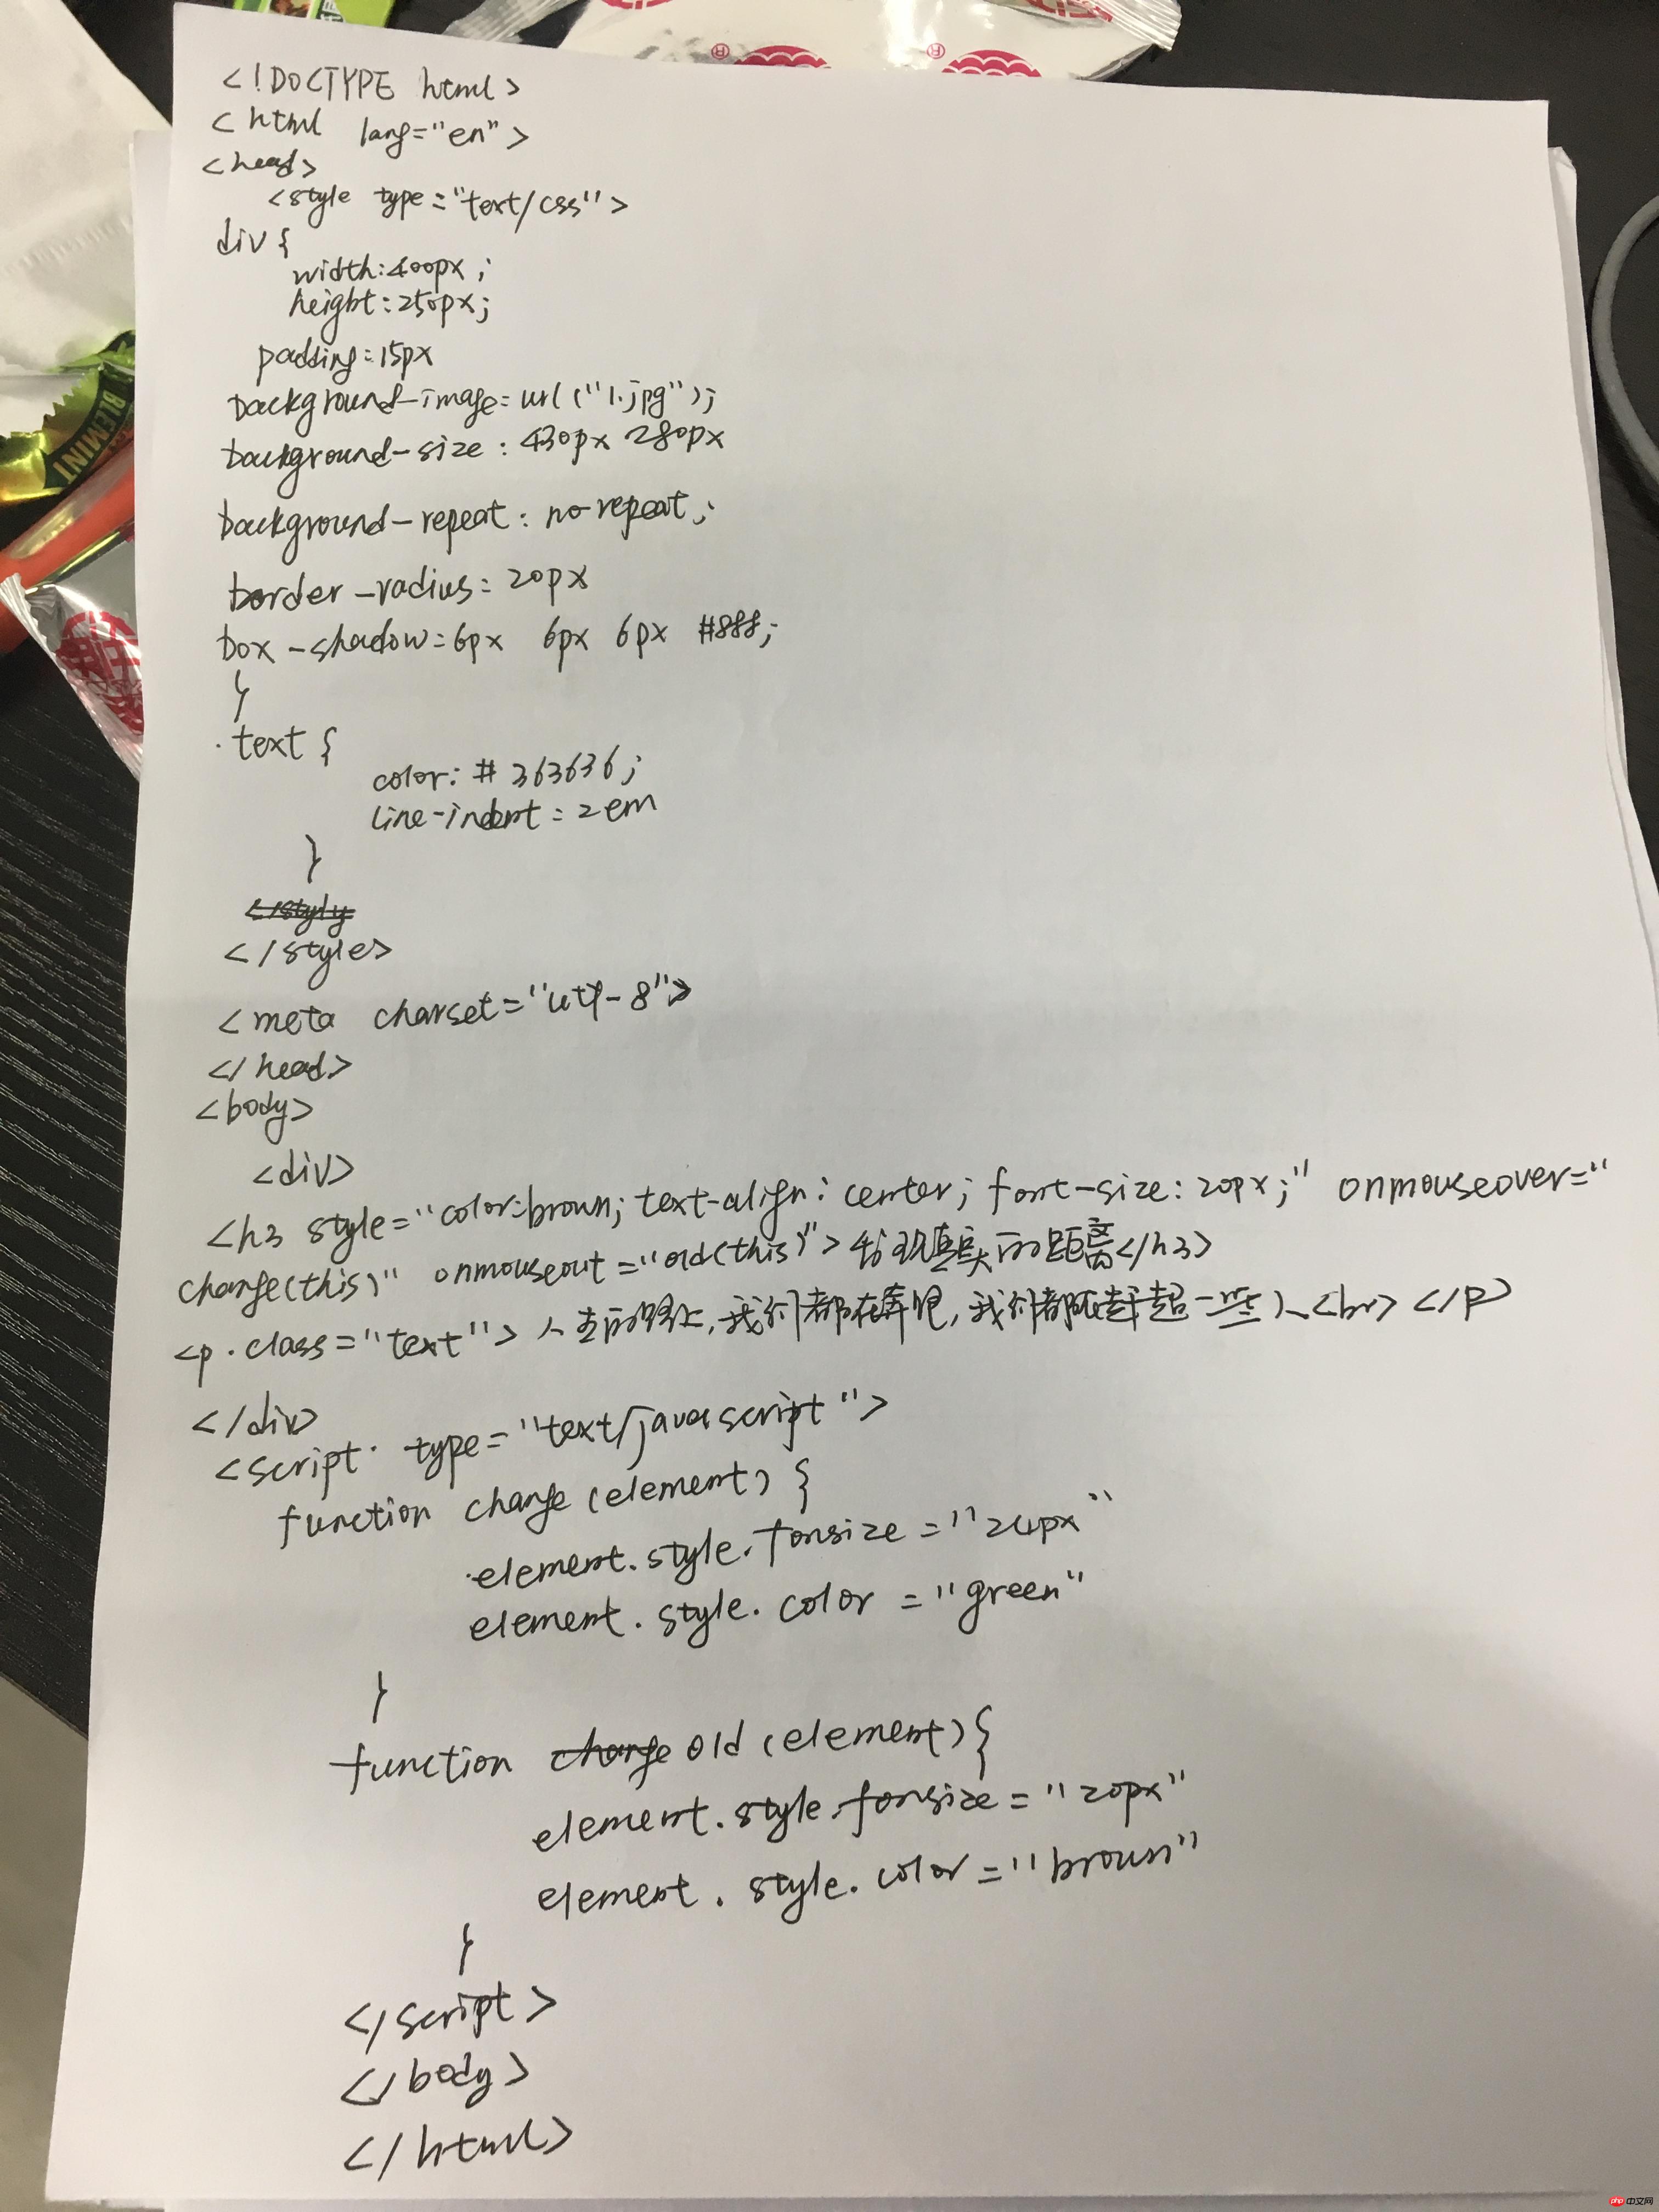 <!DOCTYPE html>
<html lang="en">
<head>
<style type="text/css">
div {
width:400px;
height:250px;
padding:15px
background-image:url("1.jpg");
background-size:430px 280px
background-repeat:no-repeat;
border-radius:20px
box-shadow:6px 6px 6px #888;
}
.text {
color:#363636;
line-indent:2em
}
</styly
</style>
<meta charset="utf-8">
</head>
<body>
<div>
<h3 style="color:brown; text-align:center; font-size:20px;" onmouseover="
change(this)" onmouseout="old(this)">和现真实的距离</h3>
<p.class="text">人生的路上,我们都在奔跑,我们都在赶超一些人<br></p>
</div>
<script type="text/javascript">
function change(element) {
element.style.fonsize="24px"
element.style.color="green"
}
function change old(element){
element.style.fonsize="20px"
element.style.color="brown"
}
</script>
</body>
</html>
BLEMINT
php 中文网